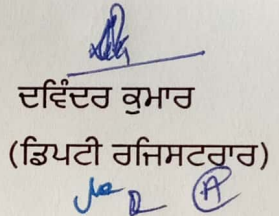 ਦਵਿੰਦਰ ਕੁਮਾਰ
(ਡਿਪਟੀ ਰਜਿਸਟਰਾਰ)
A